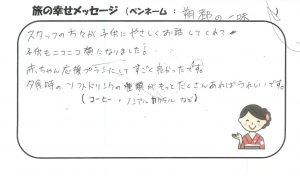 旅の幸せメッセージ (ペンネーム : 朔郡の一味
スタッフの方々が子供にやさしくお話してくれて
子供もニコニコ顔になりました!
赤ちゃん応援プランにしてすごく良かったです。
夕食時のソフトドリンクの種類がもっとたくさんあればうれしいです。
(コーヒー・ノンアルカクテル など)